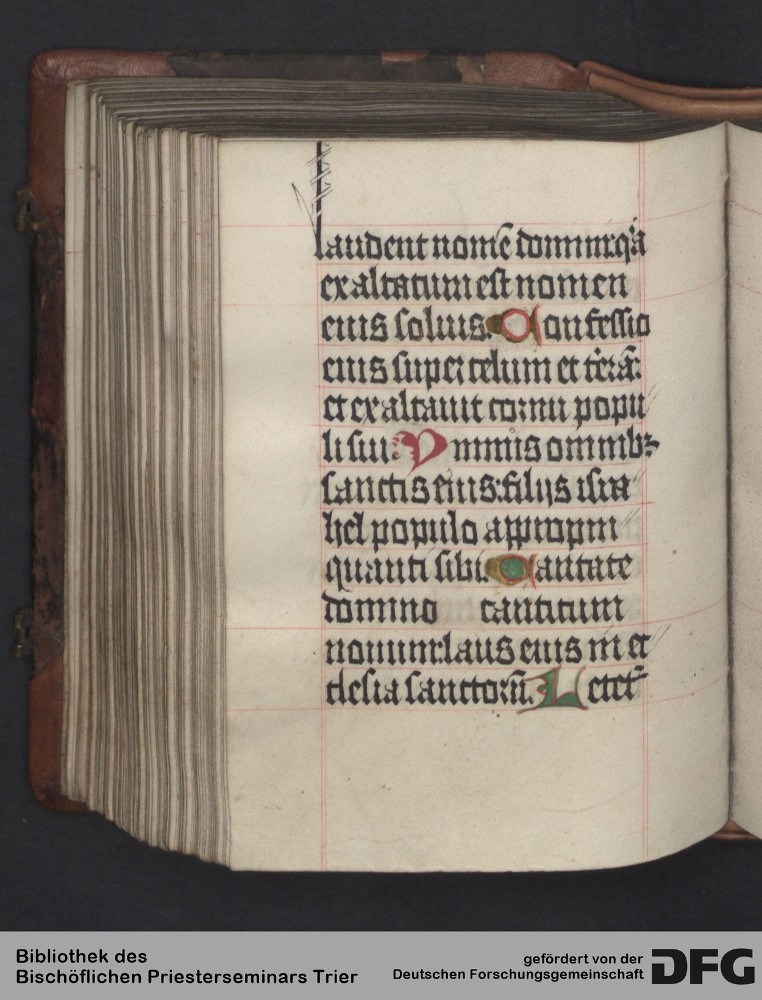 laudent nomē domini: q̄a
exaltatum est nomen
eius solius. Confessio
eius super celum et terrā:
et exaltauit cornu popu
li sui. Ymnus omnibꝫ
sanctis eius: filijs isra
hel populo appropin
quanti sibi. Cantate
domino canticum
nouum: laus eius in ec
clesia sanctorū. Letetᷣ
Bibliothek des
Bischöflichen Priesterseminars Trier
gefördert von der
Deutschen Forschungsgemeinschaft
DFG